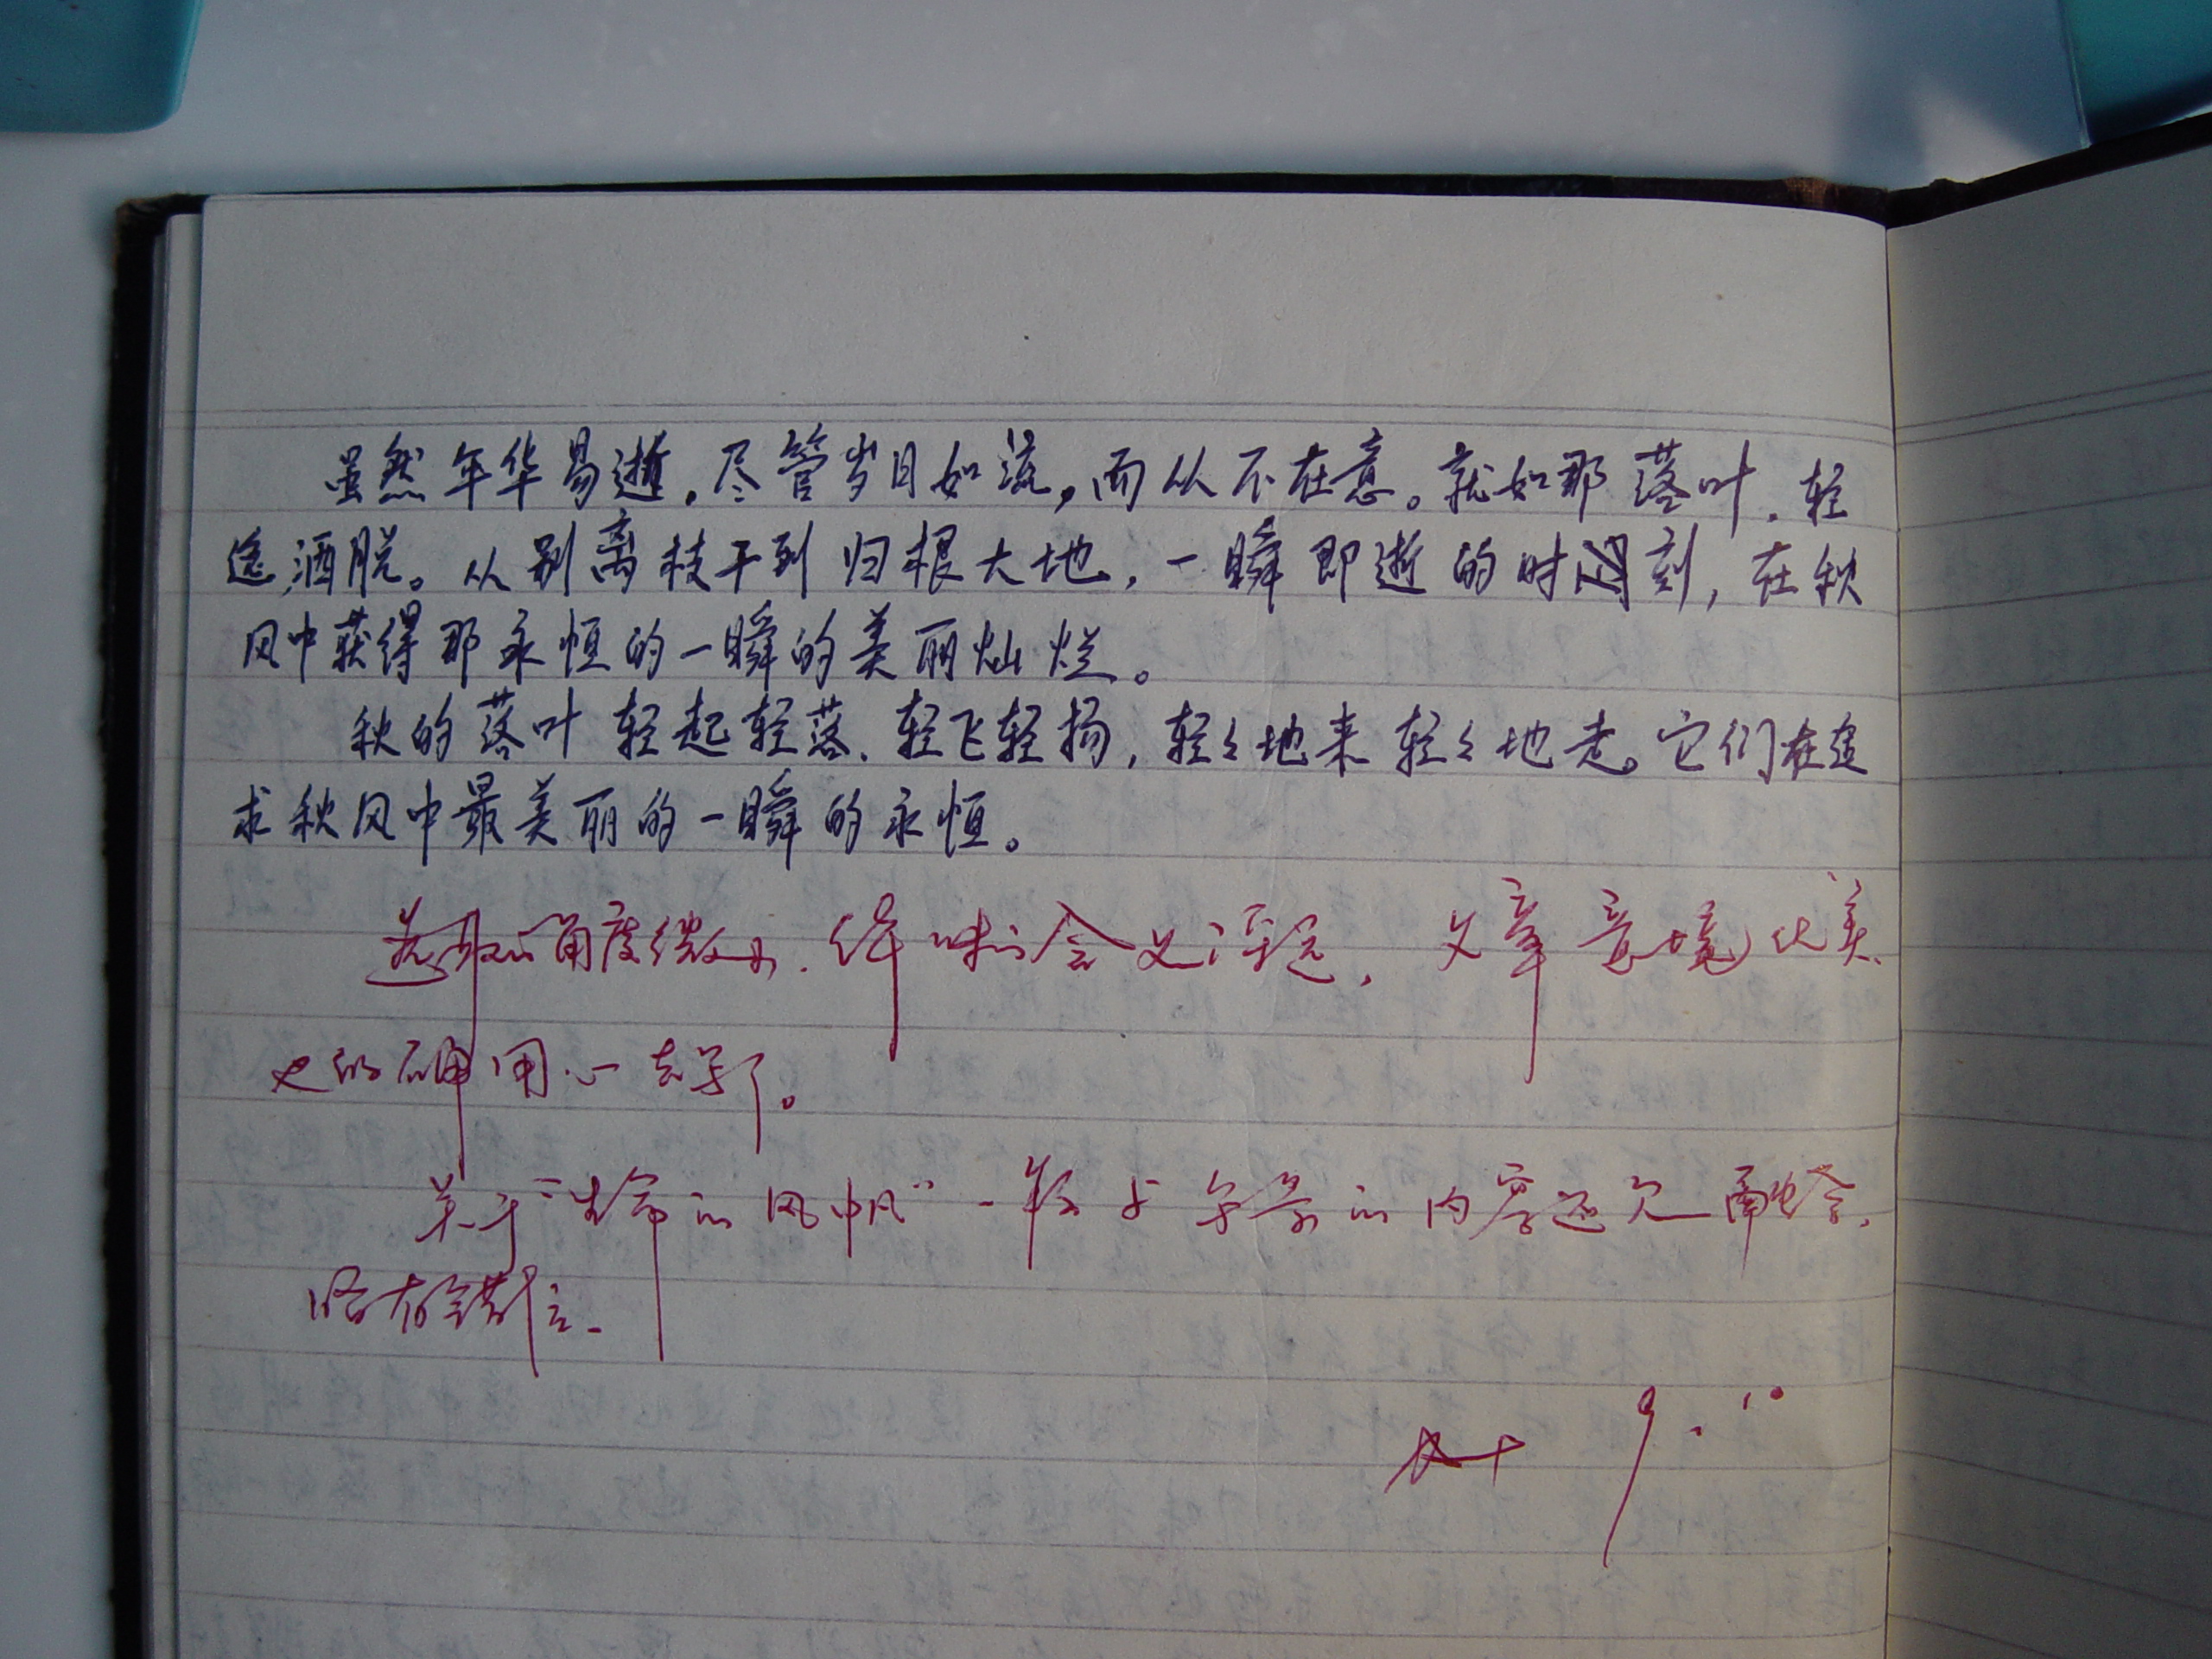 虽然年华易逝，尽管岁月如流，而从不在意。就如那落叶，轻
逸洒脱。从别离枝干到归根大地，一瞬即逝的时刻，在秋
风中获得那永恒的一瞬的美丽灿烂。
秋的落叶轻起轻落、轻飞轻扬，轻々地来轻々地走。它们在追
求秋风中最美丽的一瞬的永恒。
选取的角度微小，体味的含义深远，文章意境优美、
也的确用心去写了。
关于“生命的风帆”一段与写景的内容还欠融合，
略有错位。
A+ 9.10